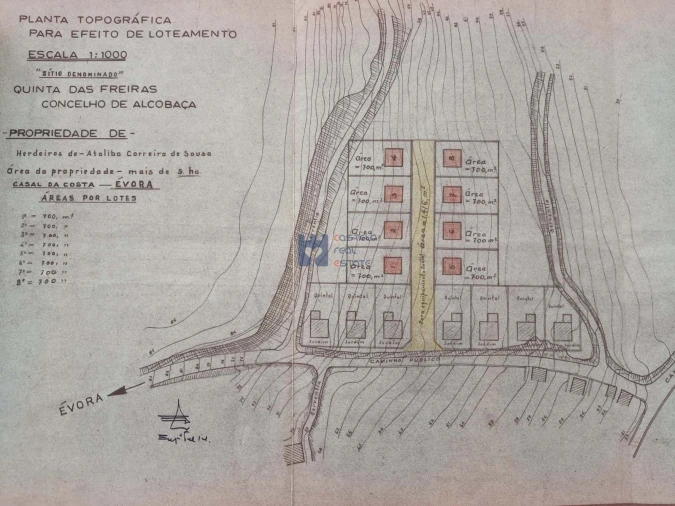 PLANTA TOPOGRÁFICA
PARA EFEITO DE LOTEAMENTO
ESCALA 1:1000
"SÍTIO DENOMINADO"
QUINTA DAS FREIRAS
CONCELHO DE ALCOBAÇA
-PROPRIEDADE DE-
Herdeiros de-Ataliba Correira de Sousa
Área da propriedade- mais de 5. ha
CASAL DA COSTA — ÉVORA
ÁREAS POR LOTES
1º = 700, m²
2º = 700, "
3º = 700, "
4º = 700, "
5º = 700, "
6º = 700, "
7º = 700 "
8º = 700 "
Área
= 700, m²
Área
= 700, m²
Área
= 700, m²
Área
= 700, m²
Área
= 700, m²
Área
= 700, m²
Área
= 700, m²
real
estate
Quintal
Quintal
Quintal
Quintal
Quintal
Quintal
Quintal
Jardim
Jardim
Jardim
Jardim
Jardim
Jardim
Jardim
CAMINHO PÚBLICO
Serventia
ÉVORA